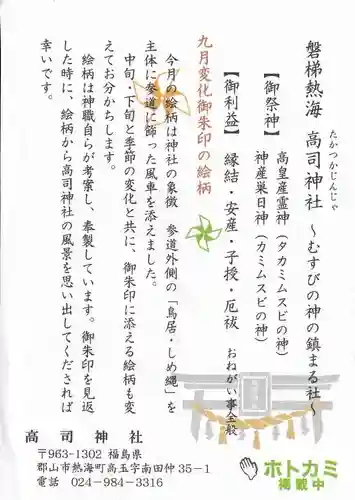 磐梯熱海 高司神社 ～むすびの神の鎮まる社～
たかつかじんじゃ
【御祭神】 高皇産霊神（タカミムスビの神）
神産巣日神（カミムスビの神）
【御利益】 縁結・安産・子授・厄祓 おねがい事全般
九月変化御朱印の絵柄
今月の絵柄は神社の象徴 参道外側の「鳥居・しめ縄」を
主体に参道に飾った風車を添えました。
中旬・下旬と季節の変化と共に、御朱印に添える絵柄も変
えてお分かちします。
絵柄は神職自らが考案し、奉製しています。御朱印を見返
した時に、絵柄から高司神社の風景を思い出してくだされば
幸いです。
高司神社
〒963-1302 福島県
郡山市熱海町高玉字南田仲35-1
電話 024-984-3316
ホトカミ
掲載中